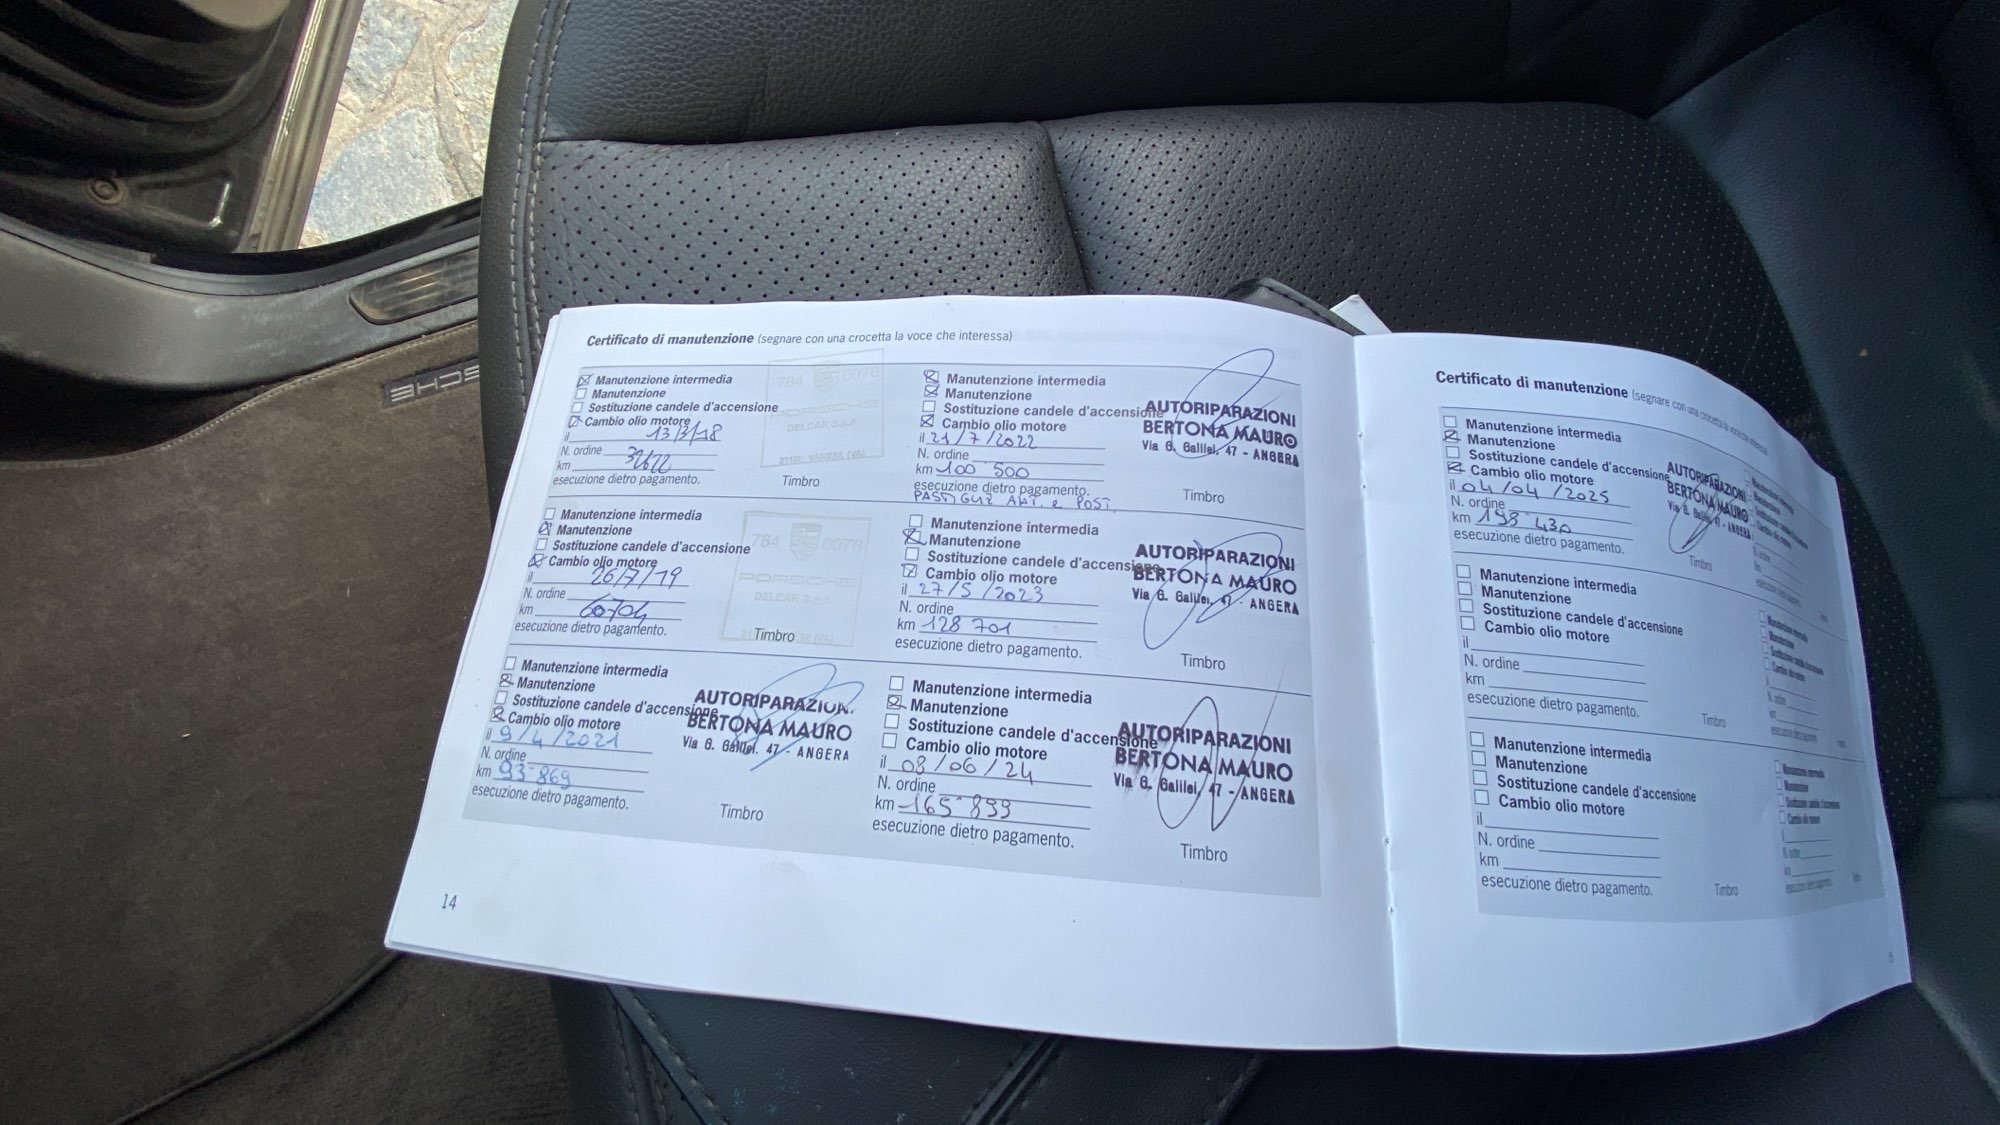 Certificato di manutenzione (segnare con una crocetta la voce che interessa)
Manutenzione intermedia
Manutenzione
Sostituzione candele d'accensione
Cambio olio motore
il 13/3/18
N. ordine
km 32622
esecuzione dietro pagamento.
Timbro
784 0076
PORSCHE
DELCAR S.p.A.
21100 VARESE (VA)
Manutenzione intermedia
Manutenzione
Sostituzione candele d'accensione
Cambio olio motore
il 26/7/19
N. ordine
km 60704
esecuzione dietro pagamento.
Timbro
784 0076
PORSCHE
DELCAR S.p.A.
Manutenzione intermedia
Manutenzione
Sostituzione candele d'accensione
Cambio olio motore
il 9/4/2021
N. ordine
km 93869
esecuzione dietro pagamento.
Timbro
AUTORIPARAZION.
BERTONA MAURO
Via G. Galilei, 47 - ANGERA
Manutenzione intermedia
Manutenzione
Sostituzione candele d'accensione
Cambio olio motore
il 21/7/2022
N. ordine
km 100 500
esecuzione dietro pagamento.
POST.
Timbro
AUTORIPARAZIONI
BERTONA MAURO
Via G. Galilei, 47 - ANGERA
Manutenzione intermedia
Manutenzione
Sostituzione candele d'accensione
Cambio olio motore
il 27/5/2023
N. ordine
km 128 701
esecuzione dietro pagamento.
Timbro
AUTORIPARAZIONI
BERTONA MAURO
Via G. Galilei, 47 - ANGERA
Manutenzione intermedia
Manutenzione
Sostituzione candele d'accensione
Cambio olio motore
il 08/06/24
N. ordine
km 165 899
esecuzione dietro pagamento.
Timbro
AUTORIPARAZIONI
BERTONA MAURO
Via G. Galilei, 47 - ANGERA
14
Certificato di manutenzione (segnare con una crocetta la voce che interessa
Manutenzione intermedia
Manutenzione
Sostituzione candele d'accensione
Cambio olio motore
il 04/04/2025
N. ordine
km 198 430
esecuzione dietro pagamento.
Timbro
BERTONA MAURO
Via G. Galilei, 47 - ANGERA
Manutenzione intermedia
Manutenzione
Sostituzione candele d'accensione
Cambio olio motore
il
N. ordine
km
esecuzione dietro pagamento.
Timbro
Manutenzione intermedia
Manutenzione
Sostituzione candele d'accensione
Cambio olio motore
il
N. ordine
km
esecuzione dietro pagamento.
Timbro